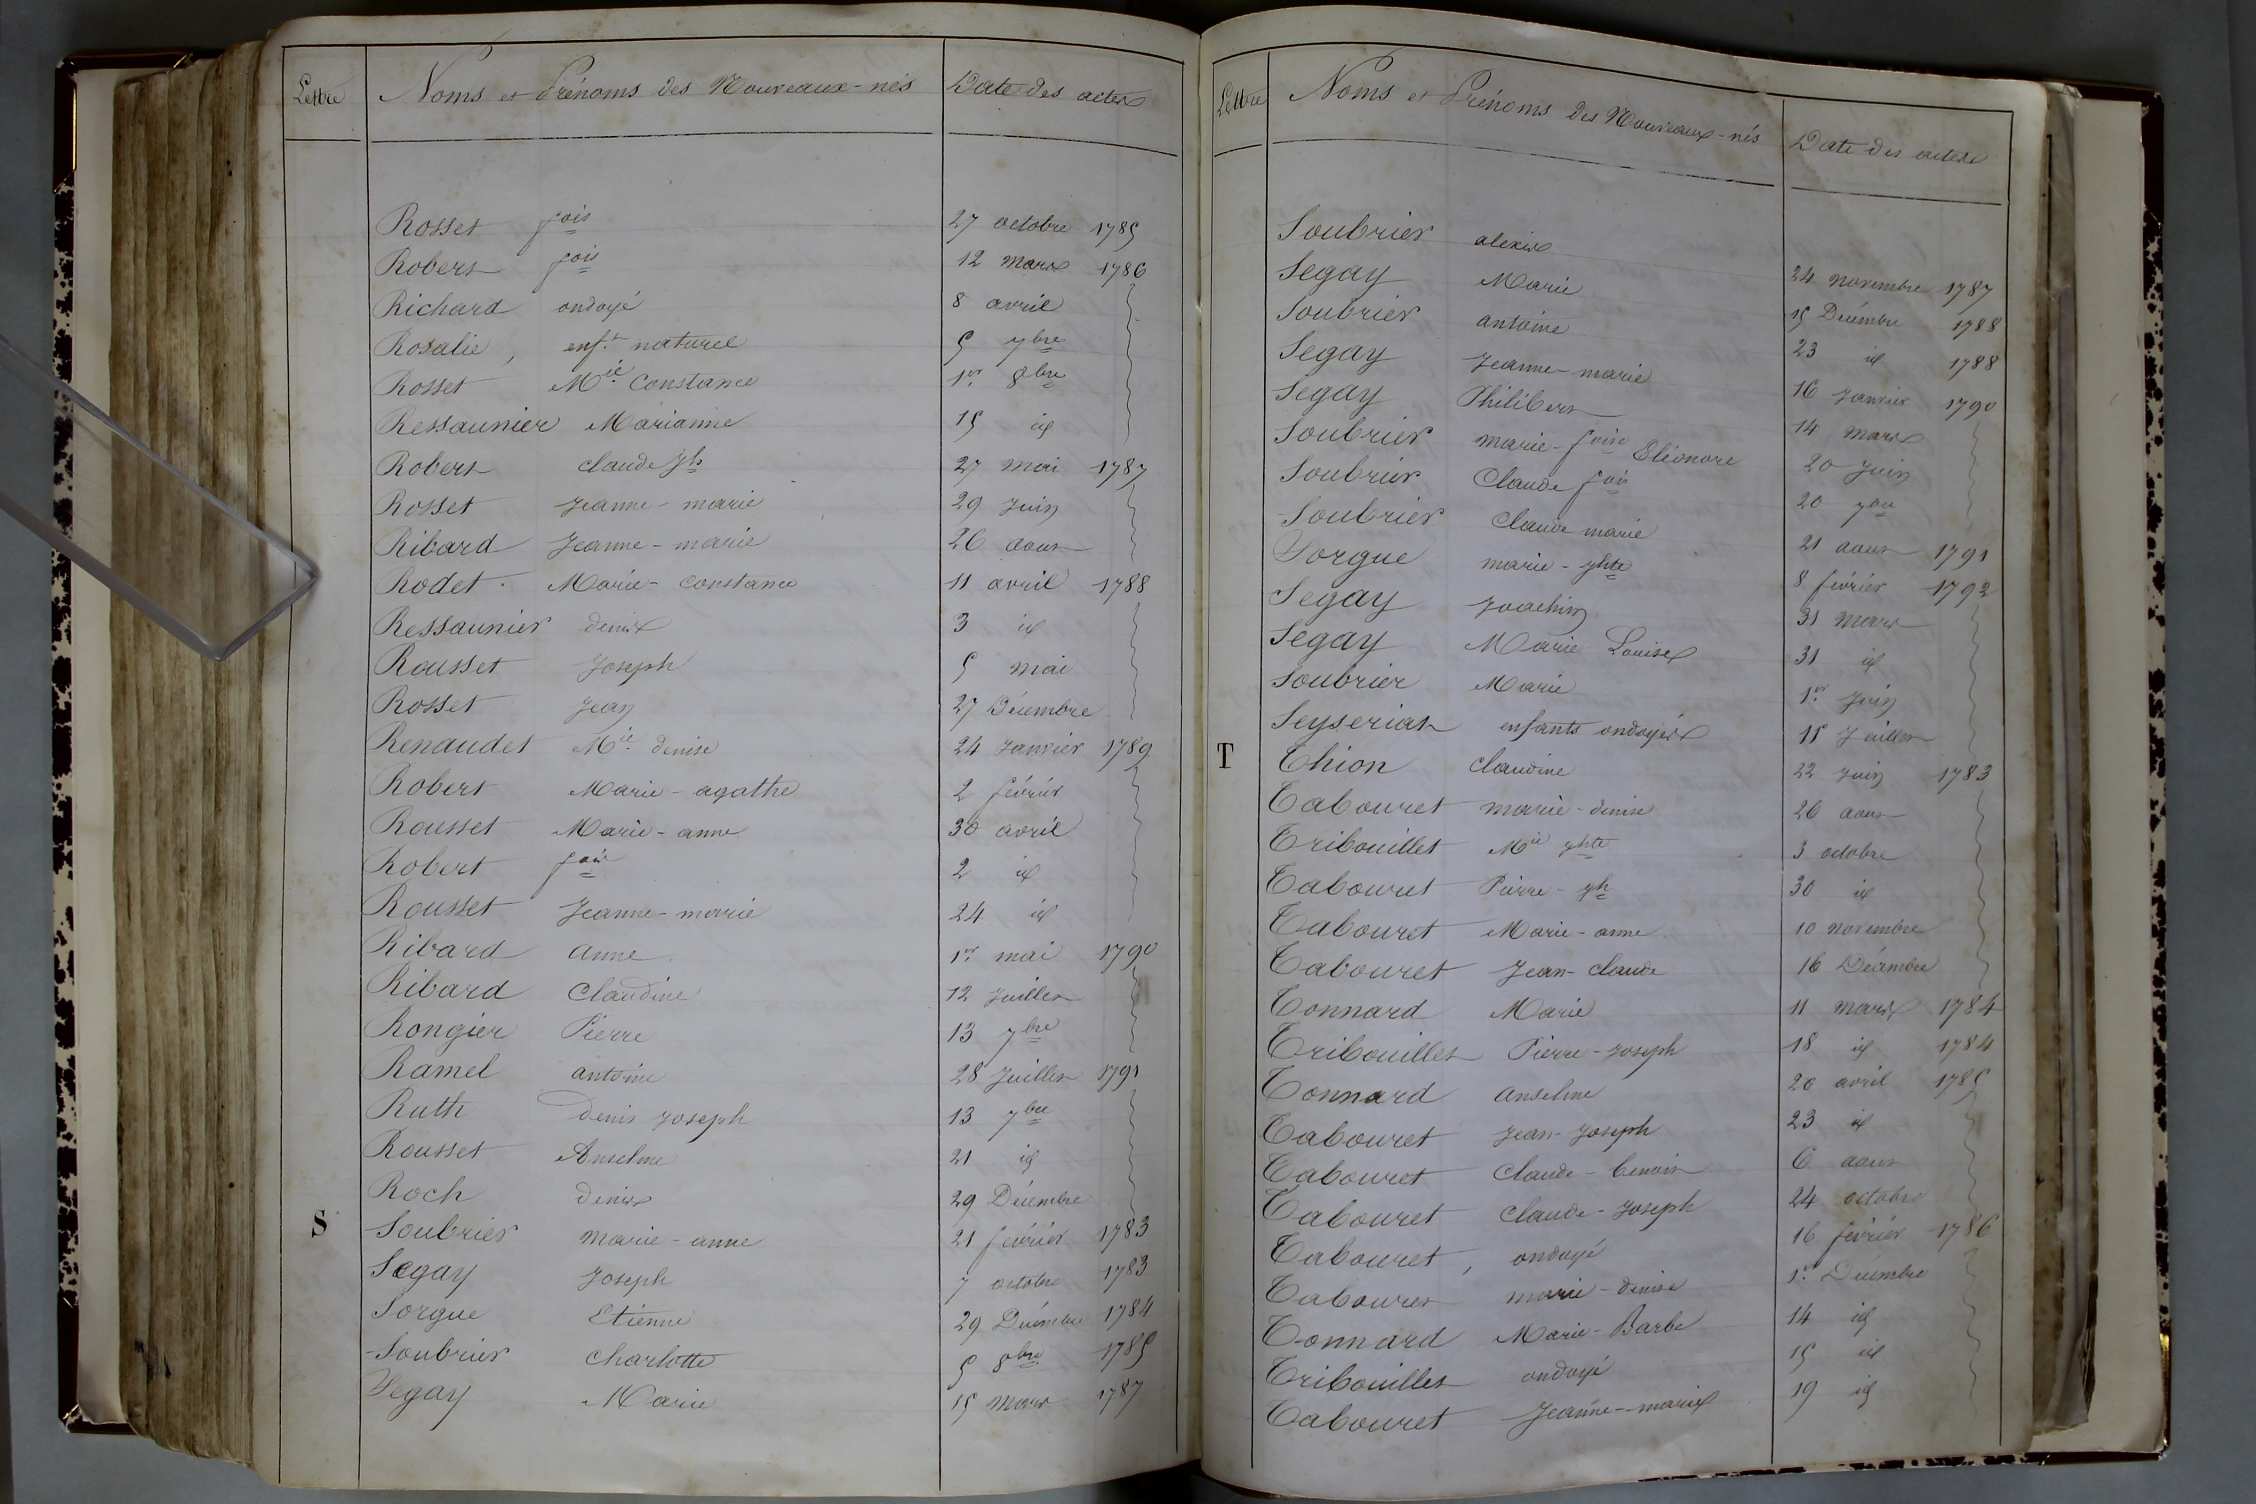 Lettre Noms et Prénoms des Nouveaux-nés Date des actes
Rosset fois 27 octobre 1785
Robert fois 12 mars 1786
Richard ondoyé 8 avril
Rosalie, enf.t naturel 5 7bre
Rosset Mie Constance 1er 8bre
Ressaunier Marianne 15 id
Robert claude Jh 27 mai 1787
Rosset Jeanne-marie 29 Juin
Ribard Jeanne-marie 26 aout
Rodet Marie-Constance 11 avril 1788
Ressaunier denis 3 id
Rousset Joseph 5 mai
Rosset Jean 27 Décembre
Renaudet Mie denise 24 Janvier 1789
Robert Marie-agathe 2 février
Rousset Marie-anne 30 avril
Robert fois 2 id
Rousset Jeanne-marie 24 id
Ribard anne 1er mai 1790
Ribard Claudine 12 Juillet
Rongier Pierre 13 7bre
Ramel antoine 28 Juillet 1791
Ruth Denis Joseph 13 7bre
Rousset Anselme 21 id
Roch denis 29 Décembre
S Soubrier marie-anne 21 février 1783
Segay Joseph 7 octobre 1783
Sorgue Etienne 29 Décembre 1784
Soubrier Charlotte 5 8bre 1785
Segay Marie 15 Mars 1787
Lettre Noms et Prénoms des Nouveaux-nés Date des actes
Soubrier alexis 24 novembre 1787
Segay Marie 15 Décembre 1788
Soubrier antoine 23 id 1788
Segay Jeanne-marie 16 Janvier 1790
Segay Philibert 14 mars
Soubrier marie-foise Eléonore 20 Juin
Soubrier Claude fois 20 7bre
Soubrier Claude marie 21 aout 1791
Sorgue marie-Jhte 8 février 1792
Segay Joachim 31 Mars
Segay Marie Louise 31 id
Soubrier Marie 1er Juin
Seyseriat enfants ondoyés 15 Juillet
T Thion claudine 22 Juin 1783
Tabouret marie-denise 26 aout
Tribouillet Mie Jhte 3 octobre
Tabouret Pierre-Jh 30 id
Tabouret Marie-anne 10 novembre
Tabouret Jean-claude 16 Décembre
Tonnard Marie 11 mars 1784
Tribouillet Pierre-Joseph 18 id 1784
Tonnard anselme 20 avril 1785
Tabouret Jean-Joseph 23 id
Tabouret Claude-benoit 6 aout
Tabouret Claude-Joseph 24 octobre
Tabouret, ondoyé 16 février 1786
Tabouret marie-denise 1er Décembre
Tonnard Marie-Barbe 14 id
Tribouillet ondoyé 15 id
Tabouret Jeanne-marie 19 id